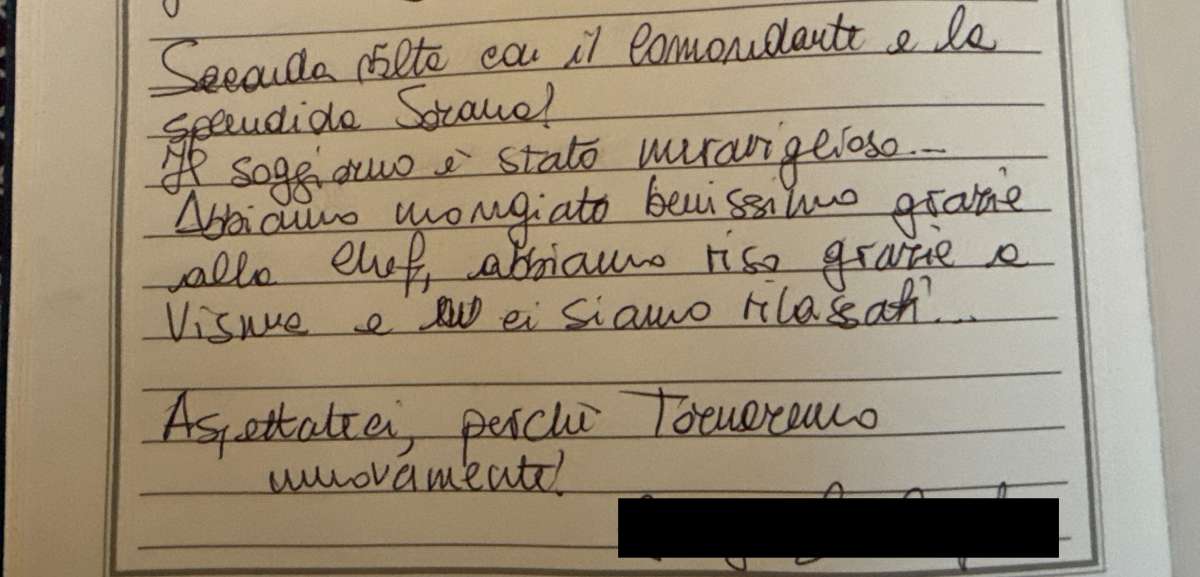 Seconda volta con il comandante e la
splendida Sorana!
Il soggiorno è stato meraviglioso...
Abbiamo mangiato benissimo grazie
allo chef, abbiamo riso grazie a
e ci siamo rilassati...
Aspettateci, perchè Torneremo
nuovamente!